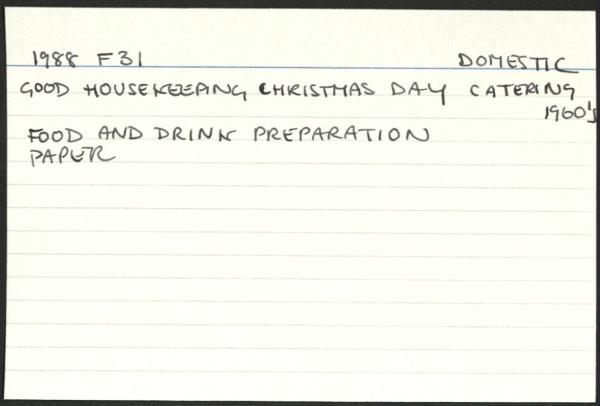 1988 F31 DOMESTIC
GOOD HOUSEKEEPING CHRISTMAS DAY CATERING
1960's
FOOD AND DRINK PREPARATION
PAPER